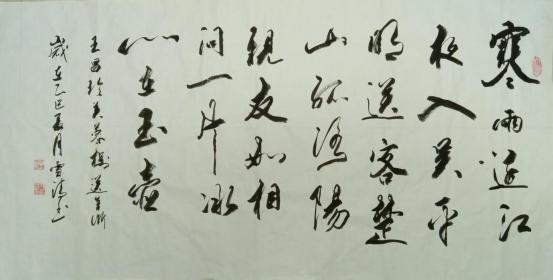 寒雨连江
夜入吴平
明送客楚
山孤洛阳
亲友如相
问一片冰
心在玉壶
王昌龄芙蓉楼送辛渐
岁在乙巳夏月雪涛书